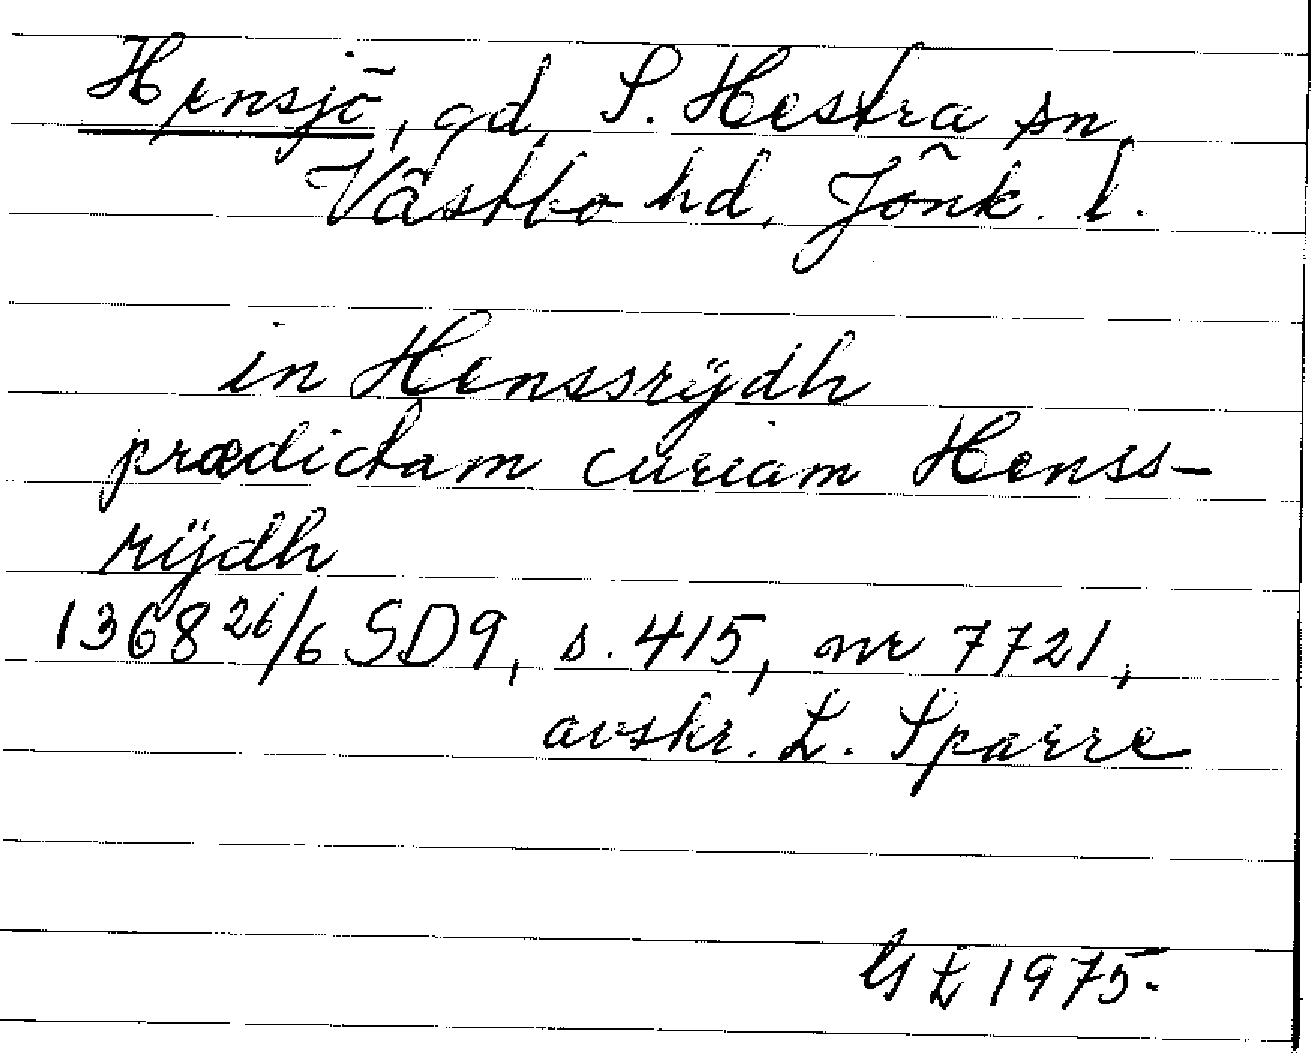 Hensjö, gd, S. Hestra sn,
Västbo hd, Jönk. l.
in Henssrÿdh
prædictam curiam Henss-
rÿdh
1368 26/6 SD9, s. 415, nr 7721,
avskr. L. Sparre
GL 1975.